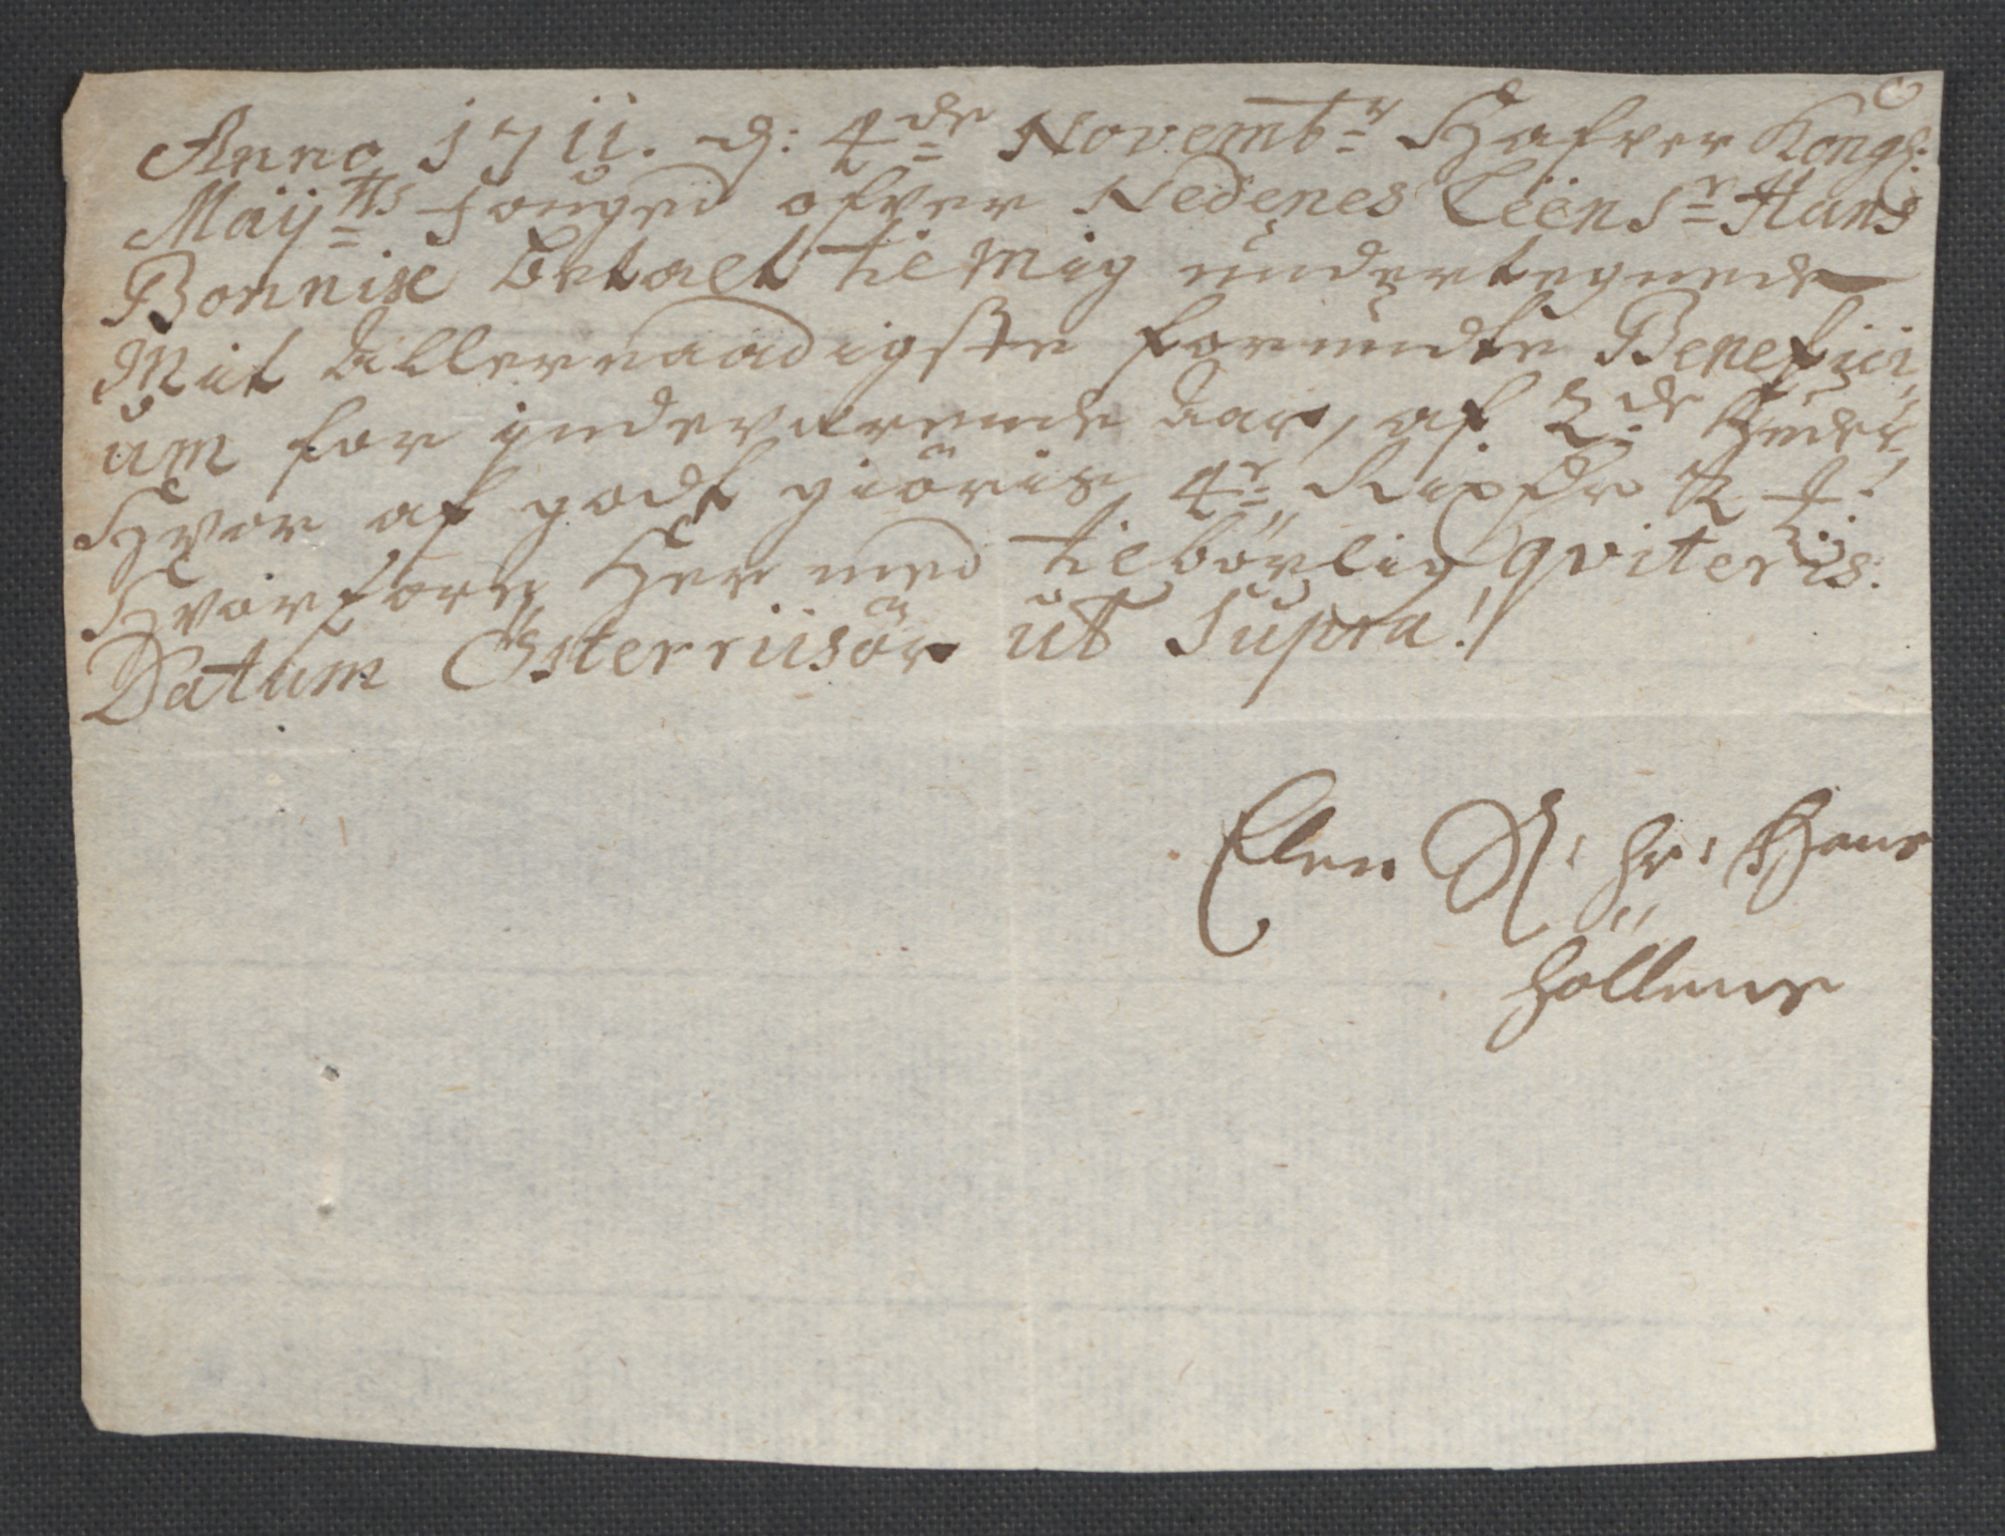 Anno 1711. d: 4de Novembr Hafver Kongl:
Maÿtts fouged ofver Nedenes Leen Sr Hans
Bonnix betalt til Mig undertegnede
Mit allernaadigste forundte Benefici-
um for indeværende aar, af 2de
Hvor af godt giöris 4r Rixdr
Hvorfore Her med tilbörlig qviteris.
Datum Österriisör ut Supra!
Elen Sl: hr: Hans
Höllens